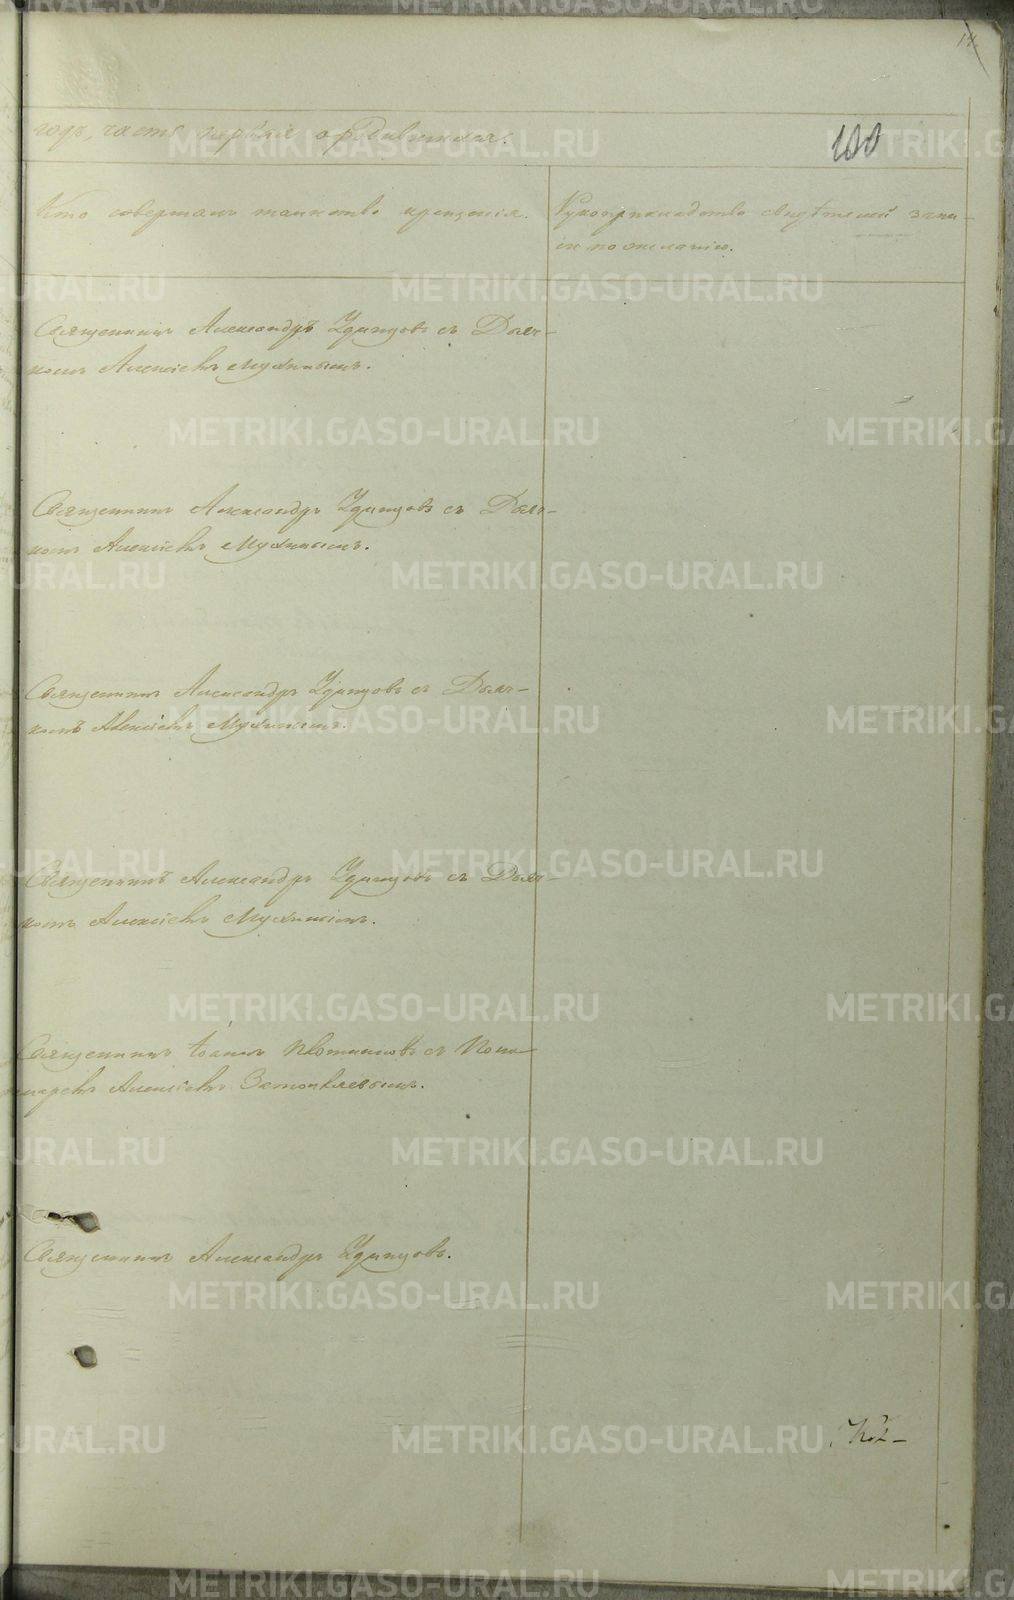 14.
годъ, часть первая о родившихся.
100
Кто совершалъ таинство крещенія.
Рукоприкладство свидѣтелей запи-
си по желанію.
Священникъ Александръ Удинцовъ съ Дьяч-
комъ Алексіемъ Мухинымъ.
Священникъ Александръ Удинцовъ съ Дьяч-
комъ Алексіемъ Мухинымъ.
Священникъ Александръ Удинцовъ съ Дьяч-
комъ Алексіемъ Мухинымъ.
Священникъ Александръ Удинцовъ съ Дьяч-
комъ Алексіемъ Мухинымъ.
Священникъ Іоаннъ съ Поно-
маремъ Алексіемъ
Священникъ Александръ Удинцовъ.
METRIKI.GASO-URAL.RU